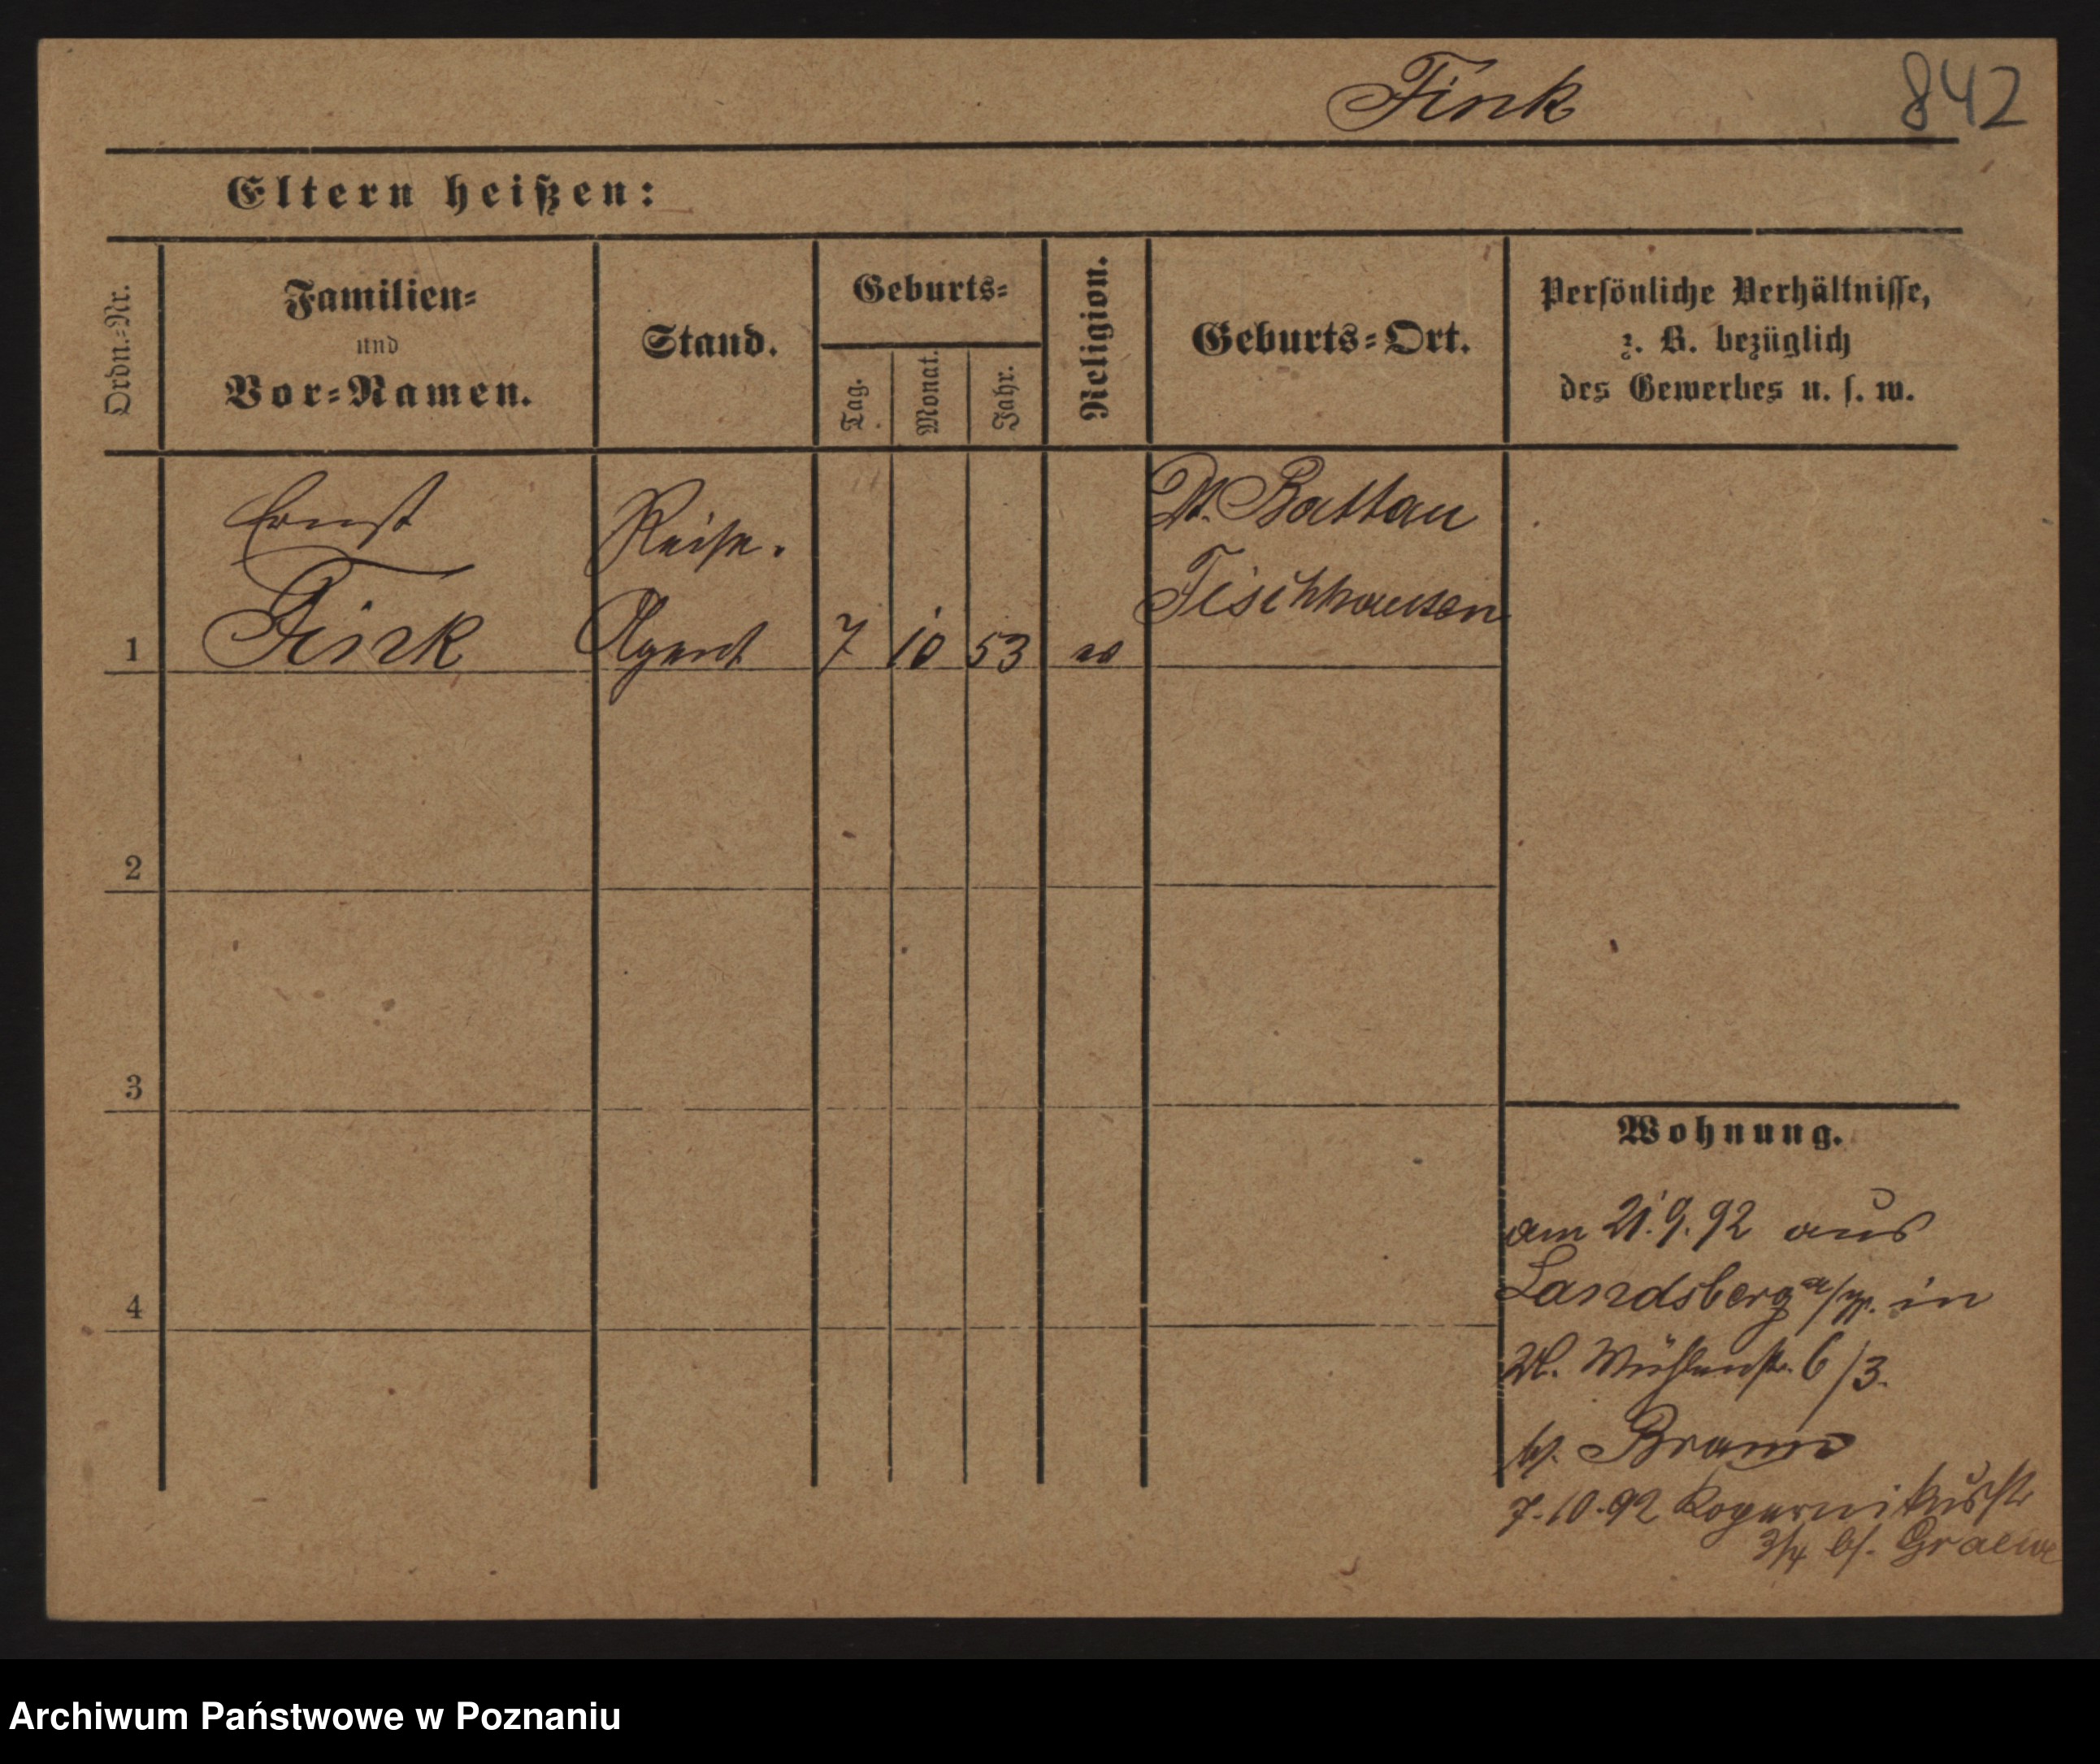 Fink 842
Eltern heißen:
Ordn.-Nr.
Familien-
und
Vor-Namen.
Stand.
Geburts-
Tag.
Monat.
Jahr.
Religion.
Geburts-Ort.
Persönliche Verhältnisse,
z. B. bezüglich
des Gewerbes u. s. w.
Ernst
Fink
Reise.
Agent
1
7 10 53
Battau
Fischhausen
2
3
4
Wohnung.
am 21.9.92 aus
Landsberg a/W. in
Mühlenstr. 6/3.
bf. Braun
7.10.92 Kopernikusstr
3/4 bf.
Archiwum Państwowe w Poznaniu